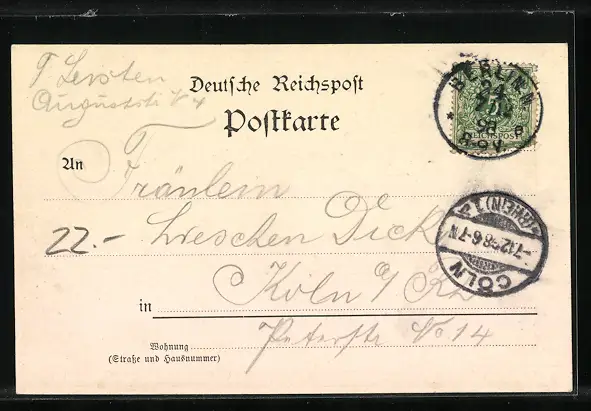 Lersten
Auguststr
Deutsche Reichspost
Postkarte
BERLIN N
24
98
8-9V
REICHSPOST
An
Fräulein
22.-
Dick
in Köln a/Rh
Peterstr No 14
Wohnung
(Straße und Hausnummer)
CÖLN
(RHEIN)
7.12.98.6-7N